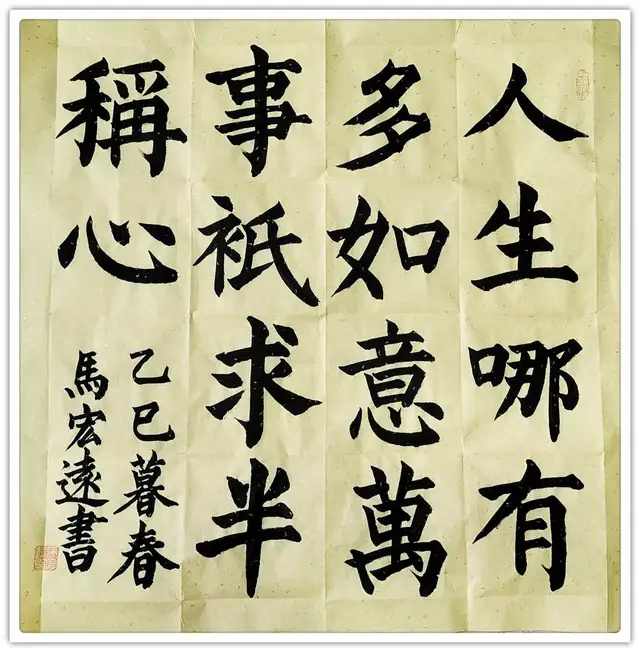 人生哪有
多如意萬
事衹求半
稱心
乙巳暮春
馬宏遠書